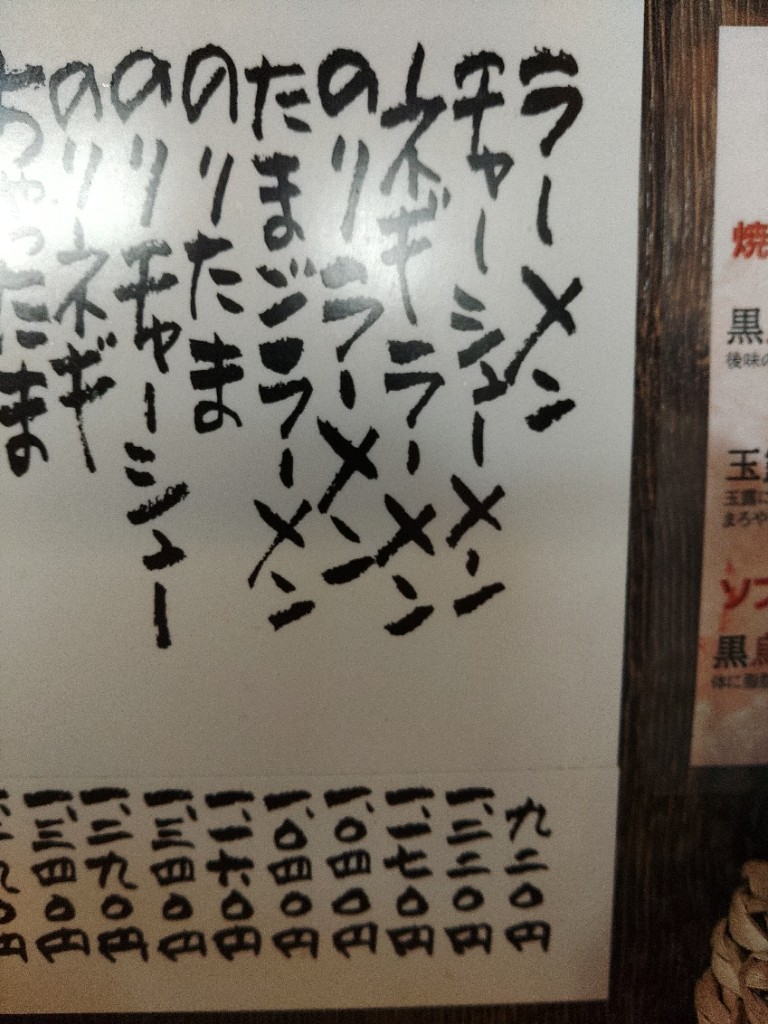 ラーメン 九二〇円
チャーシューメン 一、三二〇円
ネギラーメン 一、一七〇円
のりラーメン 一、〇四〇円
たまごラーメン 一、〇四〇円
のりたま 一、一六〇円
のりチャーシュー 一、三四〇円
のりネギ 一、二九〇円
ちゃったま 一、三四〇円
焼
黒
後味の
玉露
玉露に
まろや
ソフ
黒烏
体に脂